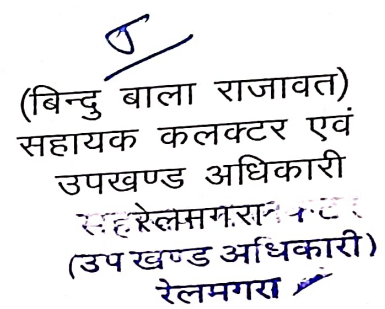 (बिन्दु बाला राजावत)
सहायक कलक्टर एवं
उपखण्ड अधिकारी
रेलमगरा
(उप खण्ड अधिकारी)
रेलमगरा